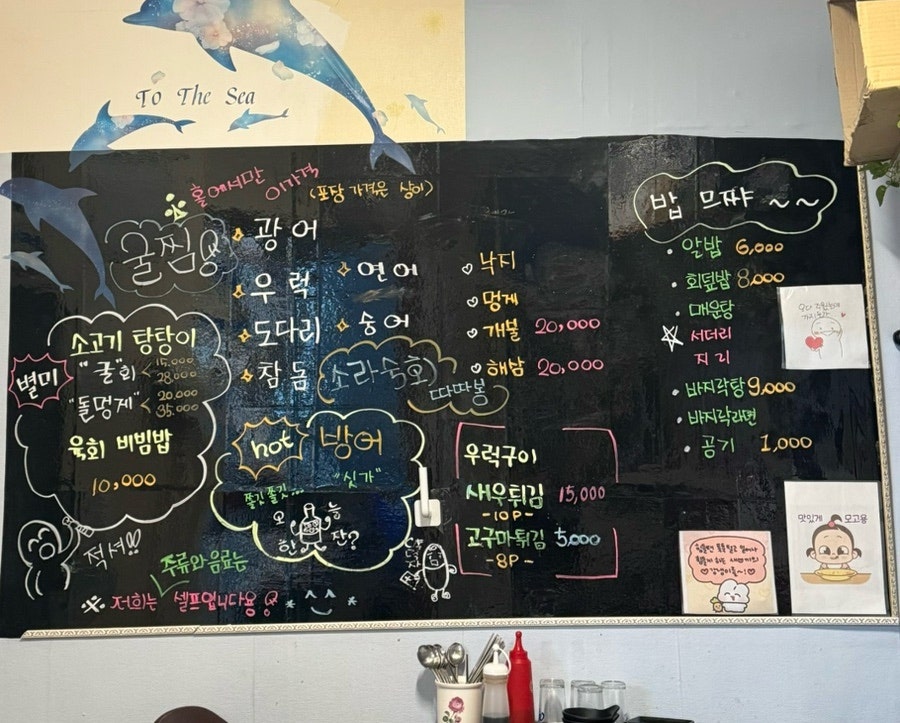 To The Sea
홀에서만 이가격 (포장 가격은 상이)
굴찜
광어
우럭
도다리
참돔
연어
숭어
소라숙회
따따봉
낙지
멍게
개불 20,000
해삼 20,000
밥 므쨔 ~~
알밥 6,000
회덮밥 8,000
매운탕
서더리
지리
바지락탕 9,000
바지락라면
공기 1,000
별미
소고기 탕탕이
"굴"회 < 15,000
28,000
"돌멍게" < 20,000
35,000
육회 비빔밥
10,000
hot 방어
"싯가"
쫄깃쫄깃...
오늘
한잔?
우럭구이
새우튀김 15,000
-10P-
고구마튀김 5,000
-8P-
적셔!!
주류와 음료는
※ 저희는 셀프입니다용
맛있게 모고용